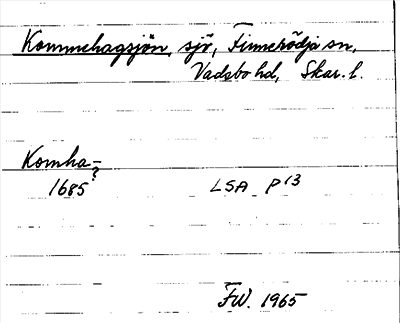 Kommehagsjön, sjö, Finnerödja sn,
Vadsbo hd, Skar. l.
Komha-?
1685 LSA P 13
FW. 1965